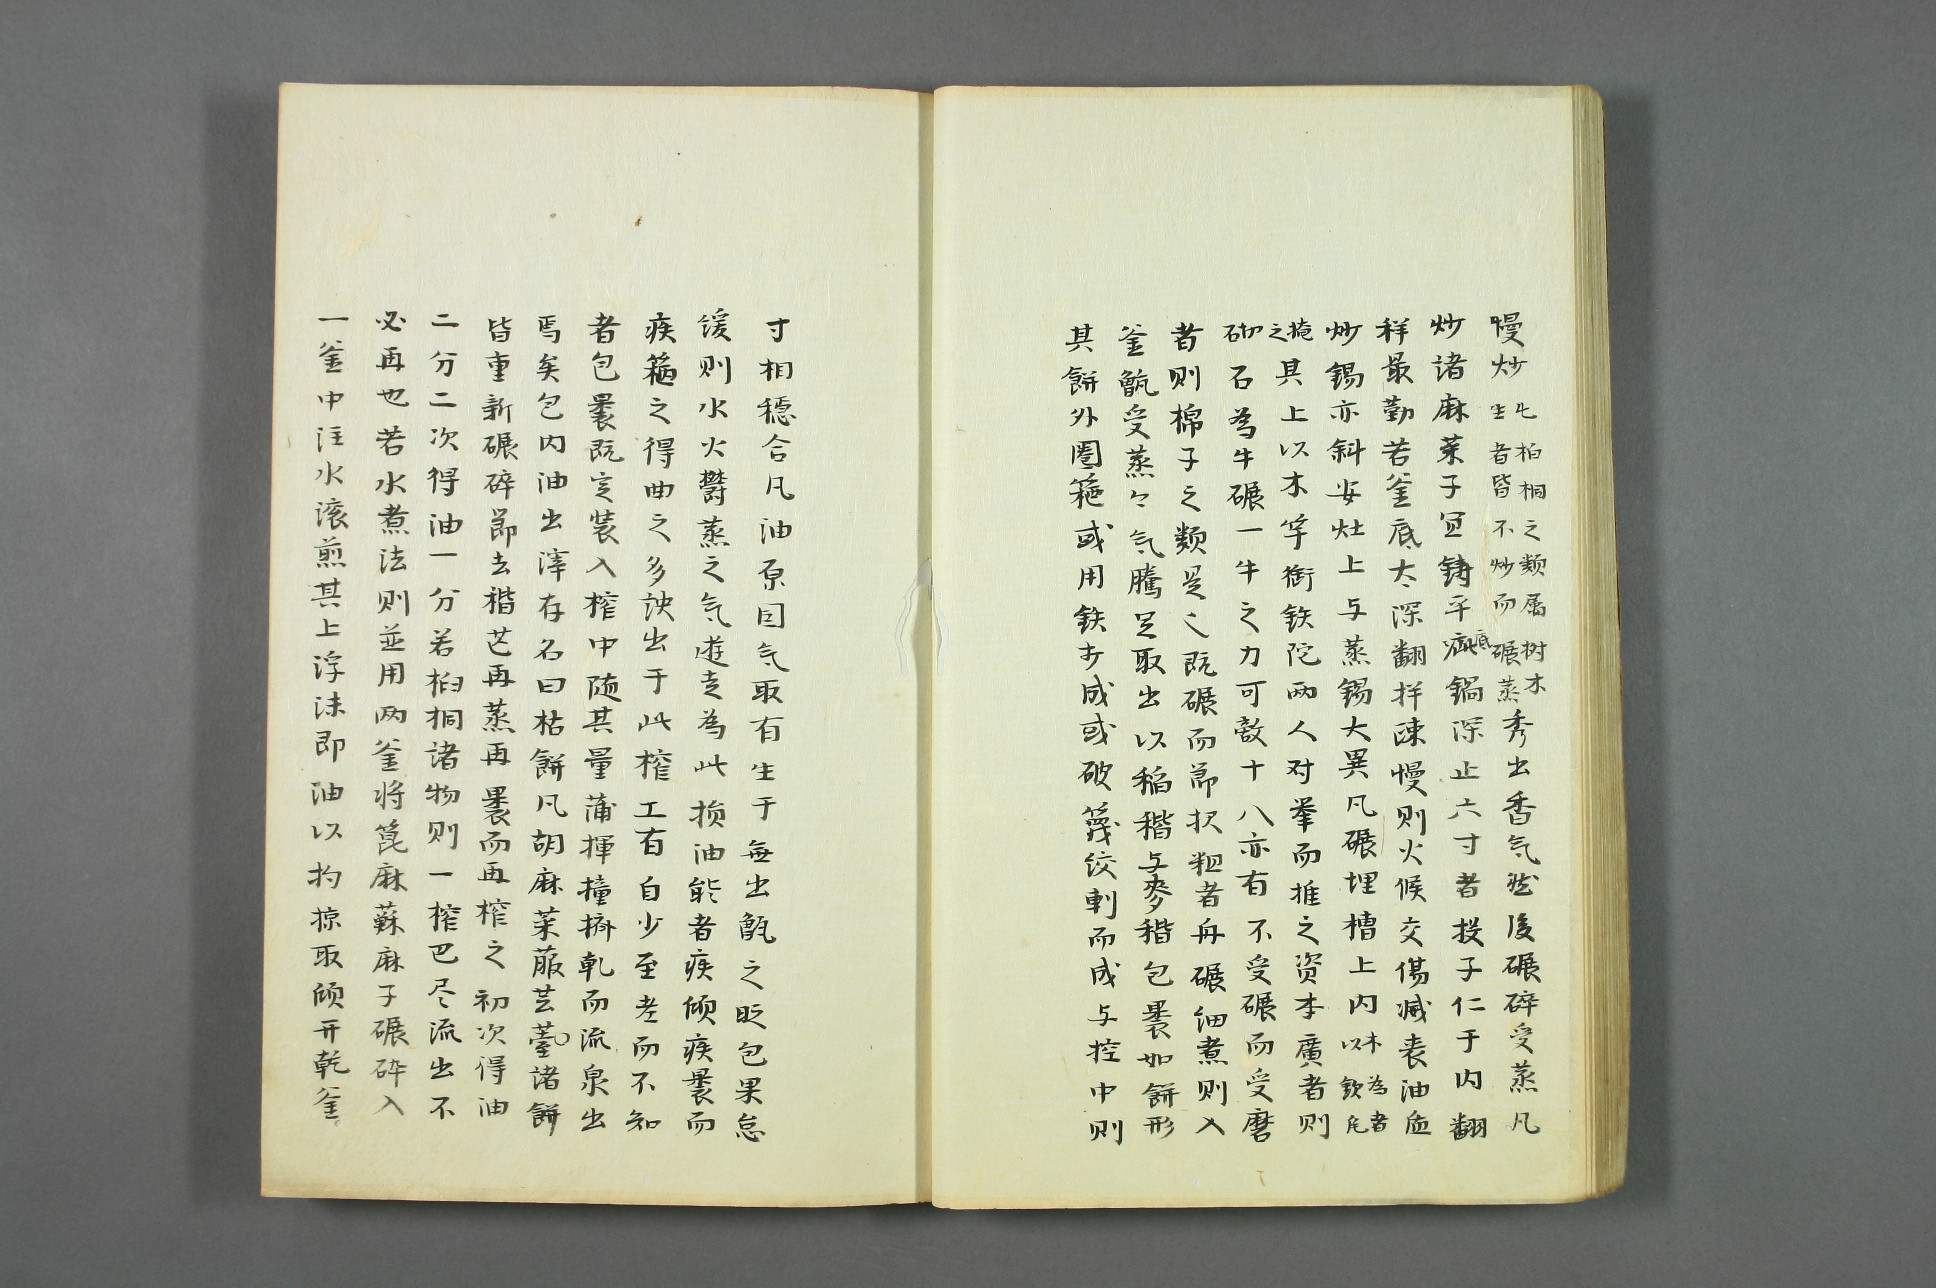 慢炒匕柏桐之類屬树木生者皆不炒而碾蒸秀出香气然後碾碎受蒸凡
炒诸麻菜子宜鋳平底鍋深止六寸者投子仁于内翻
袢最勤若釜底太深翻拌踈慢则火候交傷减丧油质
炒锡亦斜安灶上与蒸锡大異凡碾埋槽上内木為者以鉄尾
掩之其上以木竿衔鉄陀两人对举而推之资本廣者则
砌石為牛碾一牛之力可敵十人亦有不受碾而受磨
者则棉子之類是也既碾而篩択粗者再碾细煮则入
釜甑受蒸々气騰足取出以稲稭与麥稭包褁如餅形
其餅外圏箍或用鉄打成或破篾绞刺而成与控中则
寸相穏合凡油原因气取有生于無出甑之时包果怠
缓则水火欝蒸之气遊走為此损油能者疾倾疾褁而
疾箍之得曲之多訣出于此榨工有自少至老而不知
者包褁既定装入榨中随其量蒲揮撞擠軋而流泉出
焉矣包内油出滓存名曰枯餅凡胡麻莱菔芸薹诸餅
皆重新碾碎篩去稭芒再蒸再褁而再榨之初次得油
二分二次得油一分若桕桐诸物则一榨巳尽流出不
必再也若水煮法则並用两釜将箆麻蘇麻子碾砕入
一釜中注水滚煎其上浮沫即油以杓掠取倾于乾釜